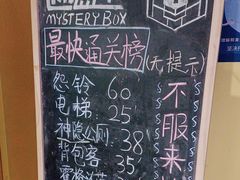 MYSTERY BOX
最快通关榜(无提示)
怨铃 60
电梯 25
神隐公厕 38
背包客 35
不服来